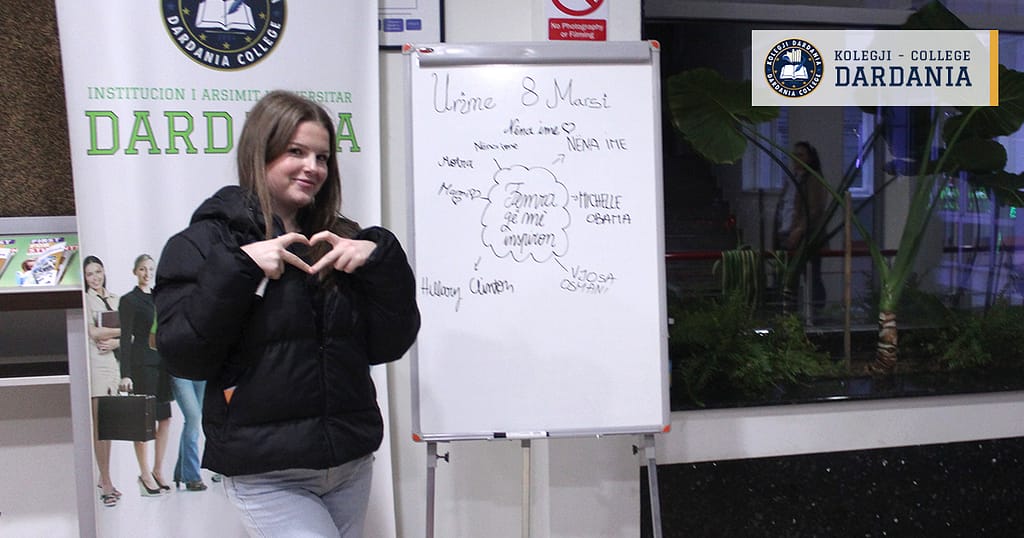 DARDANIA COLLEGE
INSTITUCION I ARSIMIT
DARD
No Photography
or Filming
KOLEGJI DARDANIA
DARDANIA COLLEGE
KOLEGJI - COLLEGE
DARDANIA
Urime 8 Marsi
Nëna ime
NËNA IME
Nëna ime
Motra
Femra
që më
inspiron
MICHELLE
OBAMA
VJOSA
OSMANI
Hillary Clinton